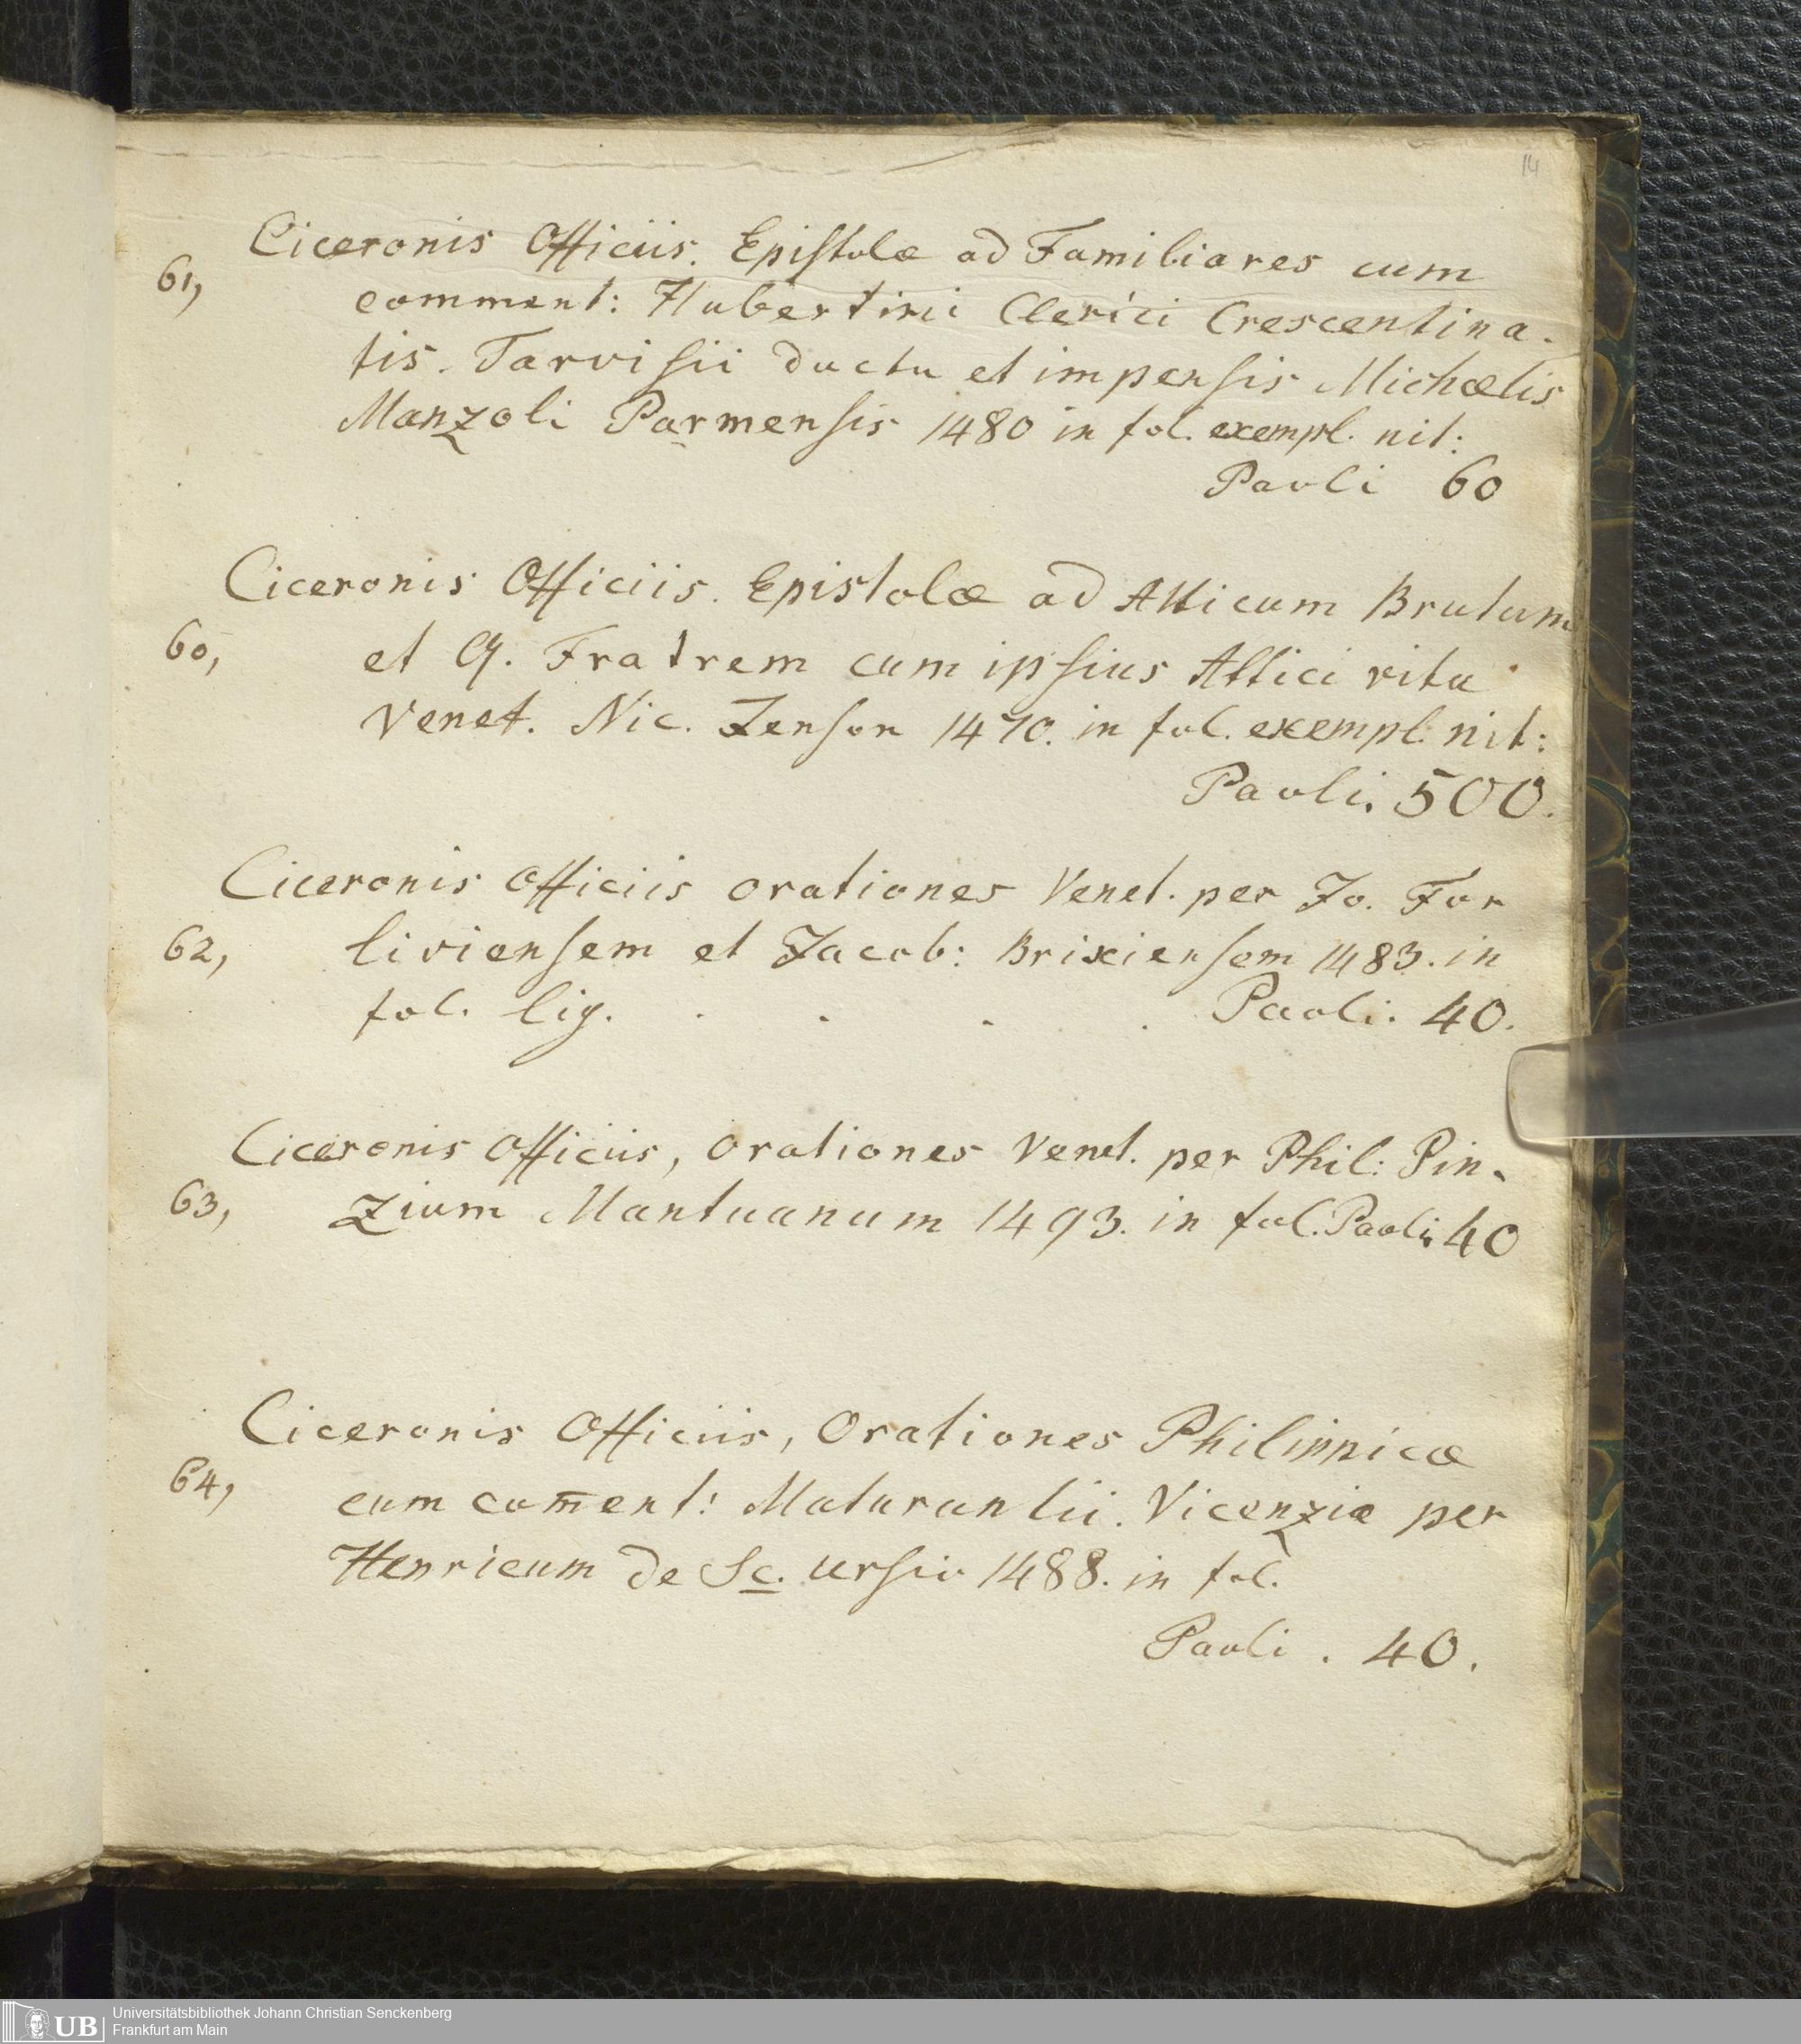 14
Ciceronis Officiis. Epistolæ ad Familiares cum
61, comment: Hubertini Clerici Crescentina-
tis. Tarvisii ductu et impensis Michælis
Manzoli Parmensis 1480 in fol. exempl. nit:
Paoli 60
Ciceronis Officiis. Epistolæ ad Atticum Brutum
60, et Q. Fratrem cum ipsius Attici vita
Venet. Nic. Jenson 1470. in fol. exempl. nit:
Paoli. 500.
Ciceronis Officiis orationes Venet. per Jo. For
62, liviensem et Jacob: Brixiensem 1483. in
fol. lig. . . . . Paoli. 40.
Ciceronis Officiis, Orationes Venet. per Phil: Pin-
63, zium Mantuanum 1493. in fol. Paoli 40
Ciceronis Officiis, Orationes Philippicæ
64, cum com̅ent: Maturantii. Vicenziæ per
Henricum de Sc. Ursio 1488. in fol.
Paoli . 40.
UB
Universitätsbibliothek Johann Christian Senckenberg
Frankfurt am Main